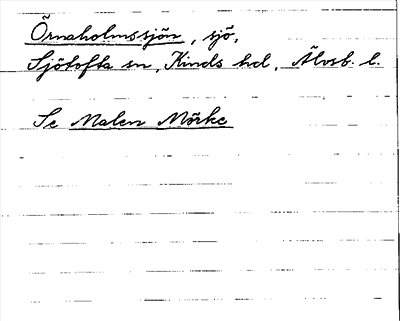 Örnaholmssjön, sjö,
Sjötofta sn, Kinds hd, Älvsb. l.
Se Malen Mörke